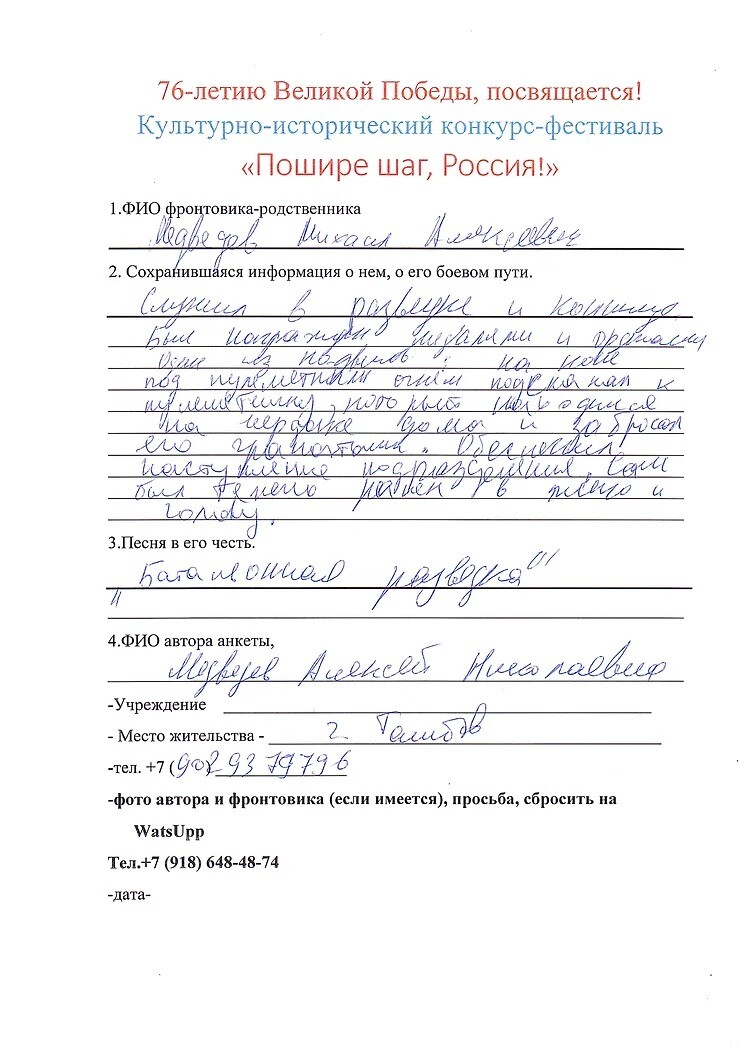 76-летию Великой Победы, посвящается!
Культурно-исторический конкурс-фестиваль
«Пошире шаг, Россия!»
1.ФИО фронтовика-родственника
Медведев Михаил Алексеевич
2. Сохранившаяся информация о нем, о его боевом пути.
Служил в разведке и
Был награжден медалями и орденами
Один из подвигов: на коне
под пулеметным огнём подскакал к
пулеметчику, который находился
на чердаке дома и забросал
его гранатами. Обеспечил
наступление подразделения. Сам
был ранен в и
голову.
3.Песня в его честь.
"Батальонная разведка"
4.ФИО автора анкеты,
Медведев Алексей Николаевич
-Учреждение
- Место жительства - г.
-тел. +7 (902 9379796
-фото автора и фронтовика (если имеется), просьба, сбросить на
WatsUpp
Тел.+7 (918) 648-48-74
-дата-